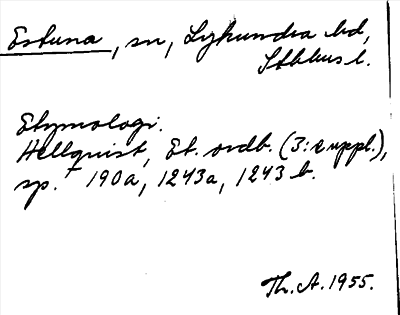 Estuna, sn, Lyhundra hd,
Sthlms l.
Etymologi.
Hellquist, Et. ordb. (3:e uppl.),
sp. 190a, 1243a, 1243 b.
Th. A. 1955.